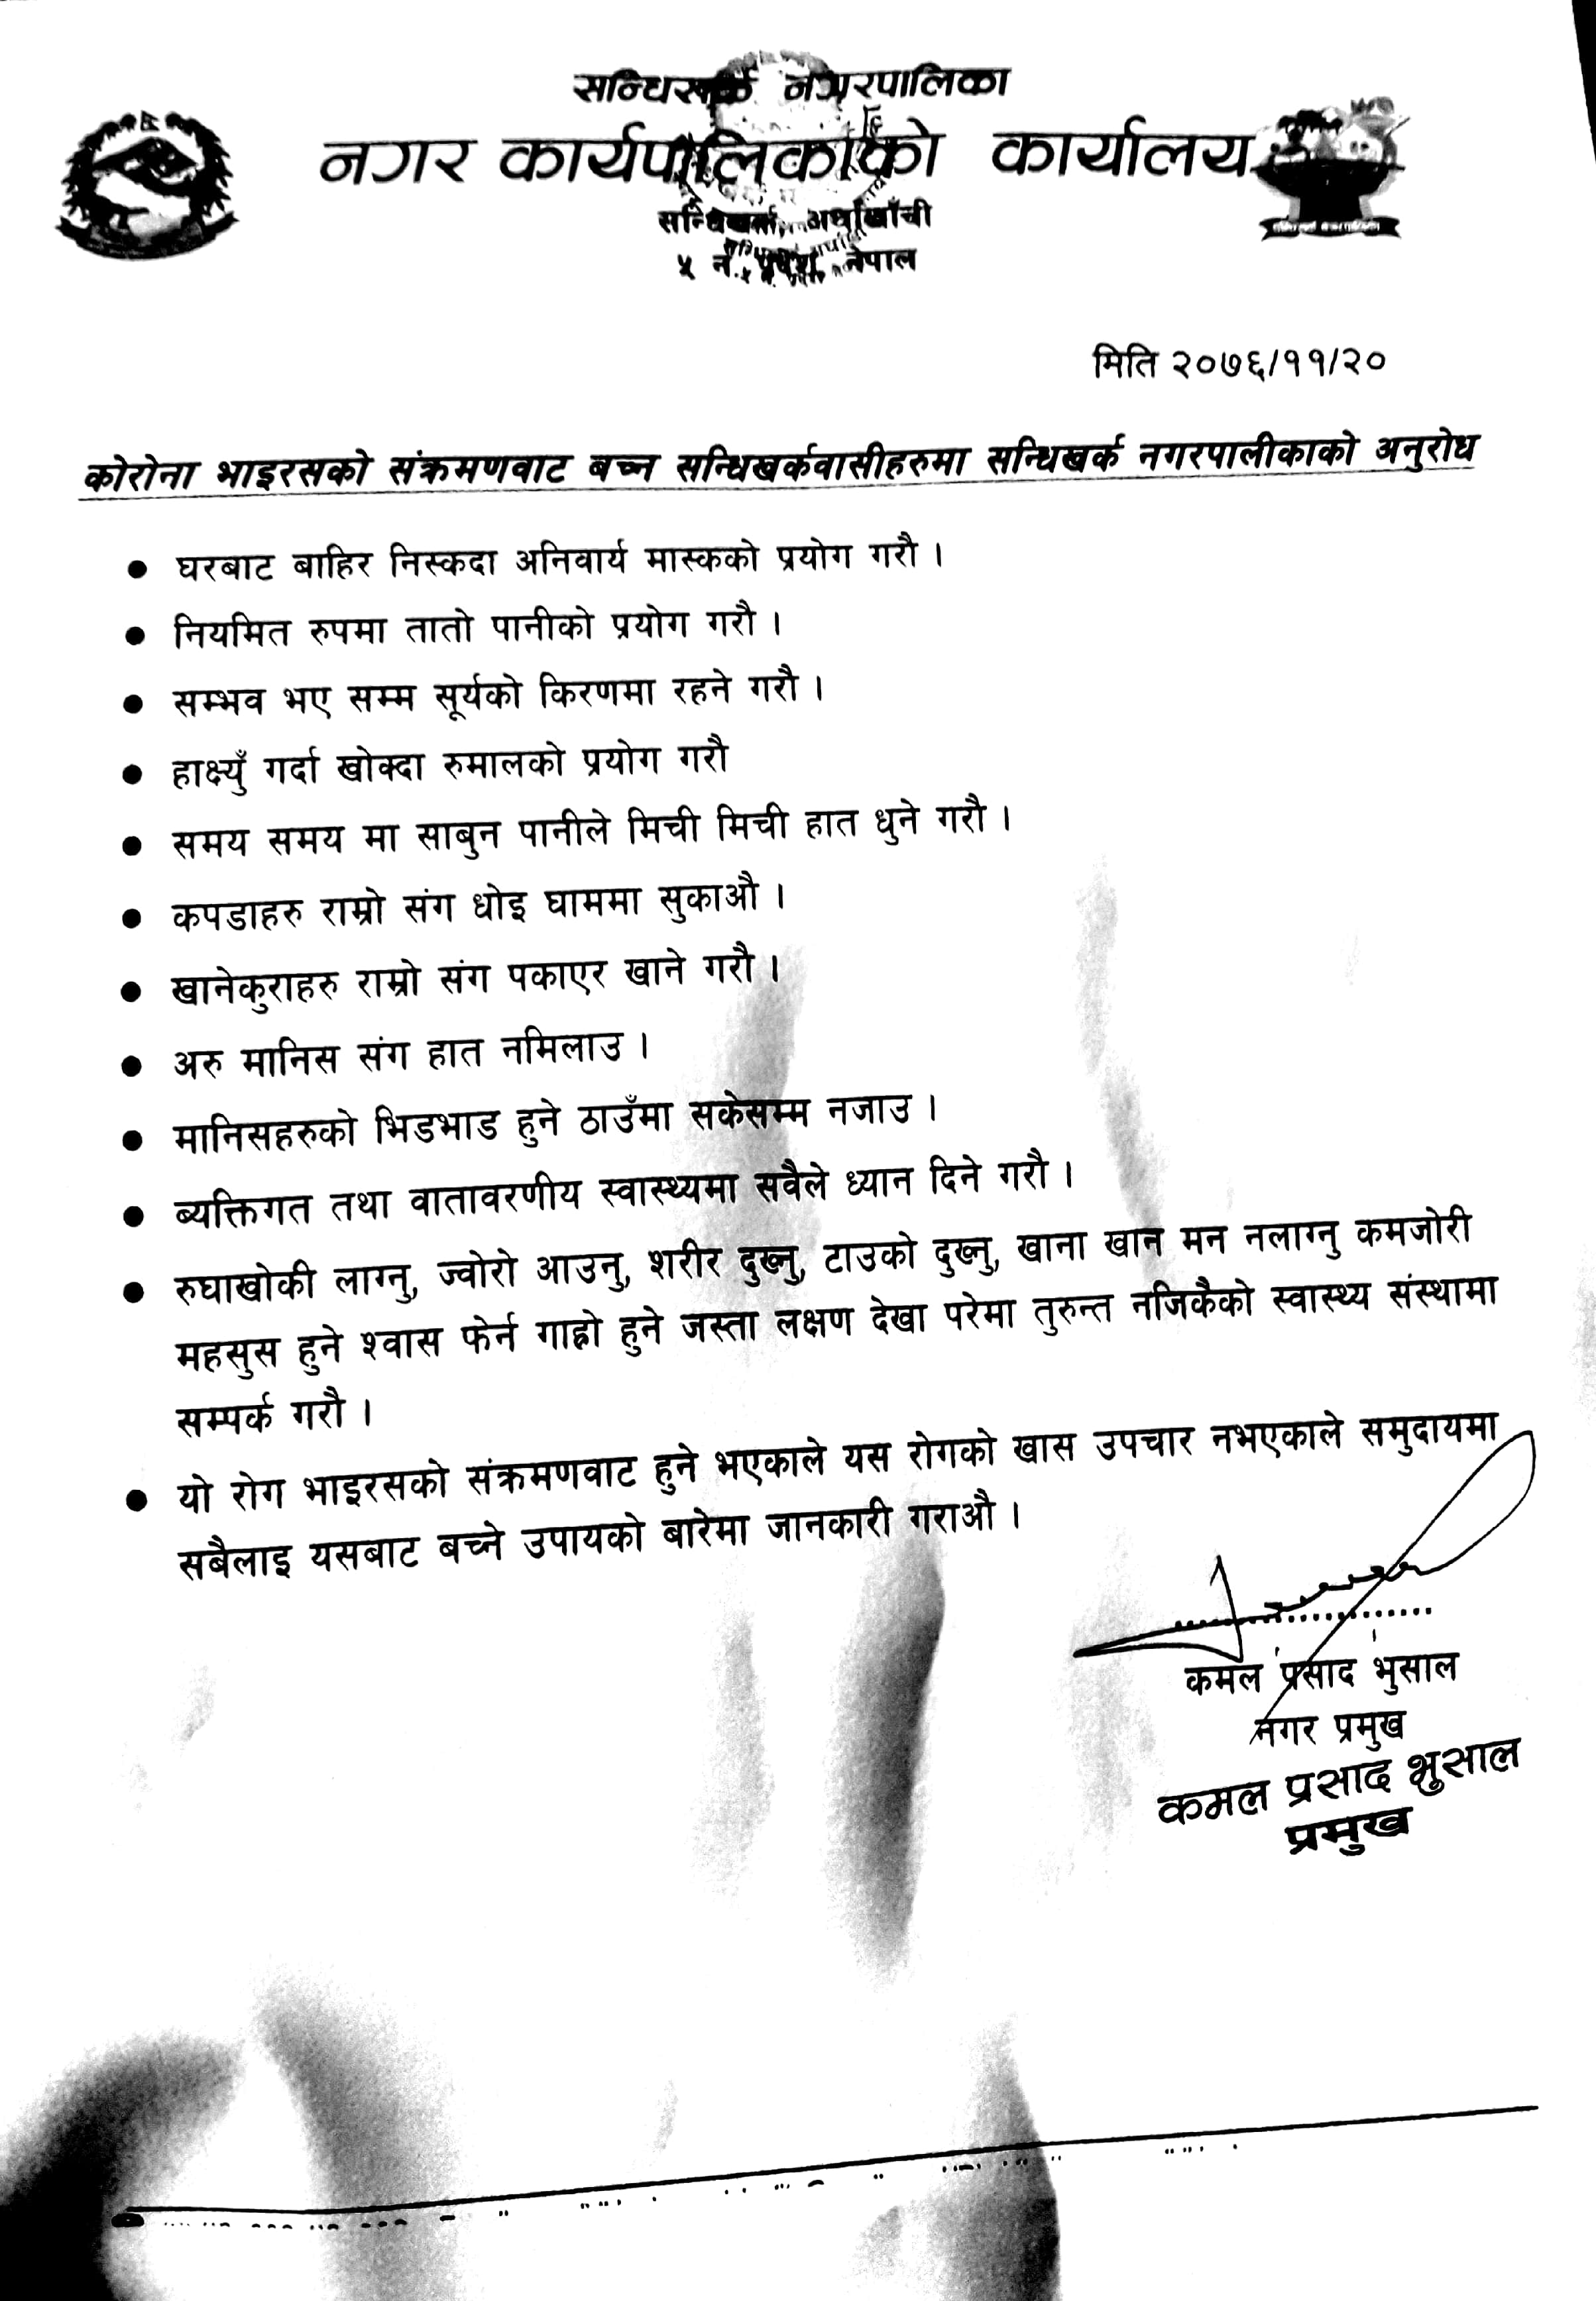 सन्धिखर्क नगरपालिका
नगर कार्यपालिकाको कार्यालय
सन्धिखर्क, अर्घाखाँची
५ नं. प्रदेश, नेपाल
मिति २०७६/११/२०
कोरोना भाइरसको संक्रमणवाट बच्न सन्धिखर्कवासीहरुमा सन्धिखर्क नगरपालीकाको अनुरोध
● घरबाट बाहिर निस्कदा अनिवार्य मास्कको प्रयोग गरौ ।
● नियमित रुपमा तातो पानीको प्रयोग गरौ ।
● सम्भव भए सम्म सूर्यको किरणमा रहने गरौ ।
● हाक्ष्युँ गर्दा खोक्दा रुमालको प्रयोग गरौ
● समय समय मा साबुन पानीले मिची मिची हात धुने गरौ ।
● कपडाहरु राम्रो संग धोइ घाममा सुकाऔ ।
● खानेकुराहरु राम्रो संग पकाएर खाने गरौ ।
● अरु मानिस संग हात नमिलाउ ।
● मानिसहरुको भिडभाड हुने ठाउँमा सकेसम्म नजाउ ।
● ब्यक्तिगत तथा वातावरणीय स्वास्थ्यमा सवैले ध्यान दिने गरौ ।
● रुघाखोकी लाग्नु, ज्वोरो आउनु, शरीर दुख्नु, टाउको दुख्नु, खाना खान मन नलाग्नु कमजोरी
महसुस हुने श्वास फेर्न गाह्रो हुने जस्ता लक्षण देखा परेमा तुरुन्त नजिकैको स्वास्थ्य संस्थामा
सम्पर्क गरौ ।
● यो रोग भाइरसको संक्रमणवाट हुने भएकाले यस रोगको खास उपचार नभएकाले समुदायमा
सबैलाइ यसबाट बच्ने उपायको बारेमा जानकारी गराऔ ।
कमल प्रसाद भुसाल
नगर प्रमुख
कमल प्रसाद भुसाल
प्रमुख